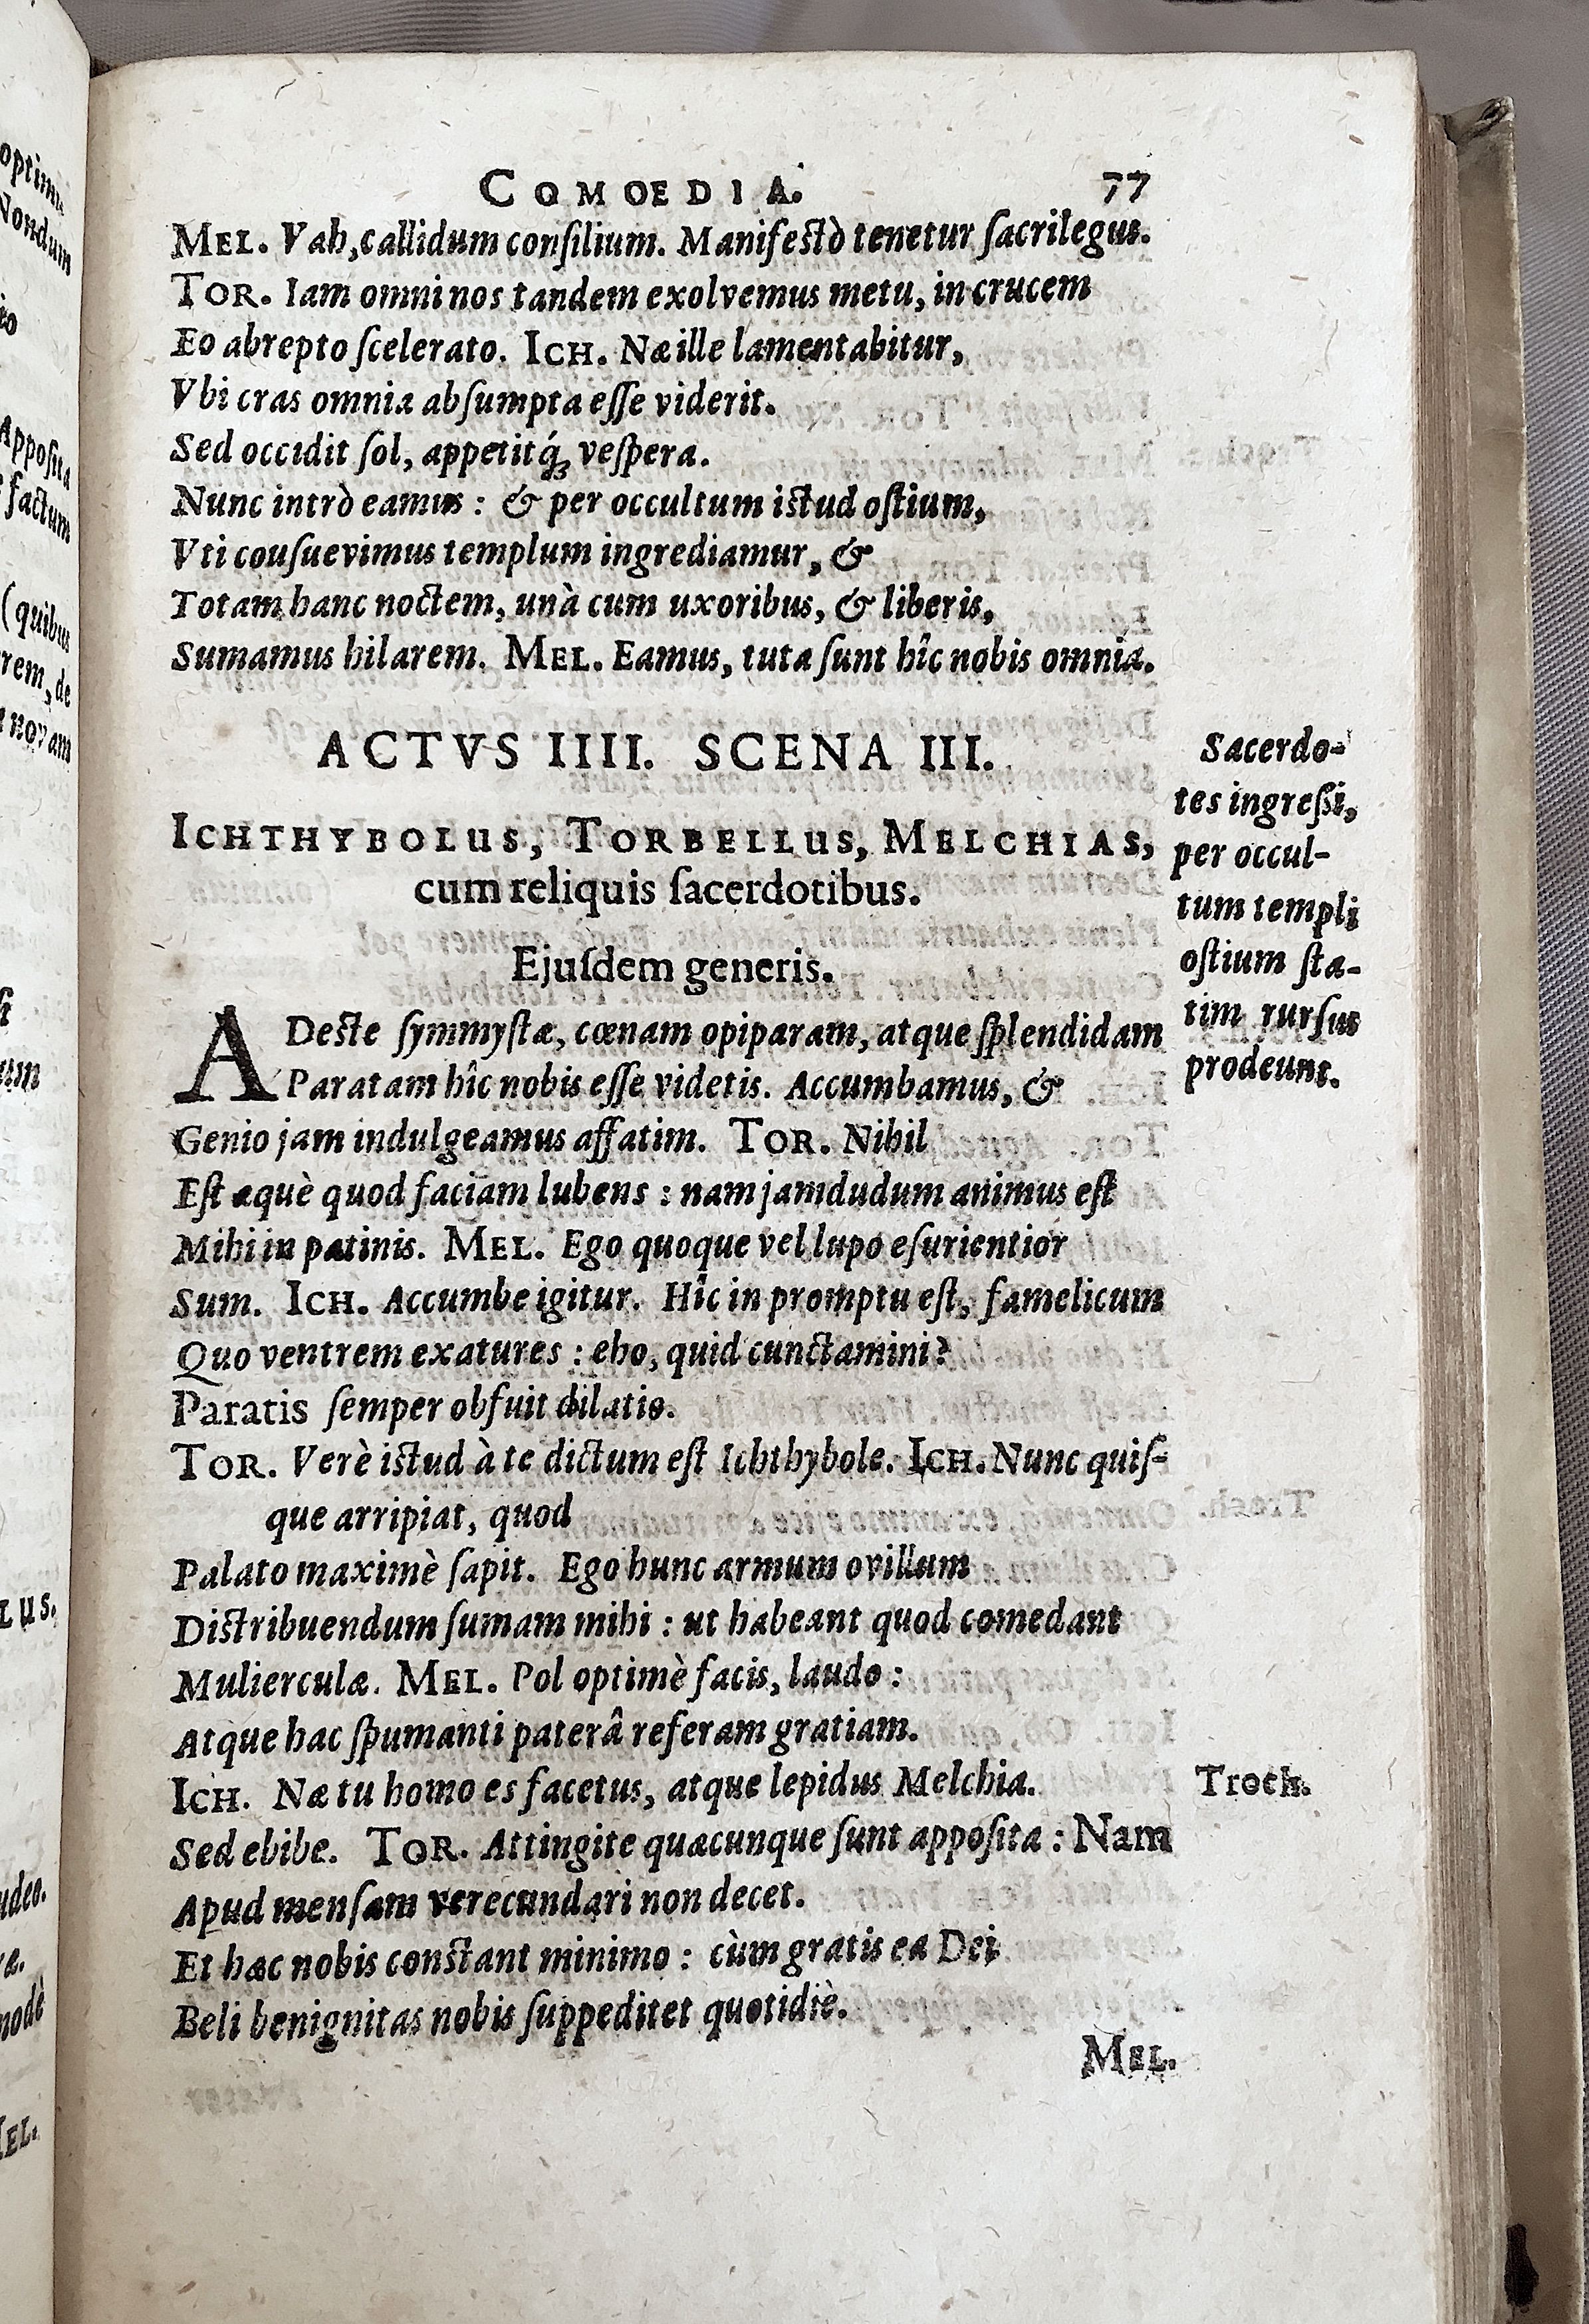 COMOEDIA. 77
MEL. Vah, callidum conſilium. Manifeſtò tenetur ſacrilegus.
TOR. Iam omni nos tandem exolvemus metu, in crucem
Eo abrepto ſcelerato. ICH. Næ ille lamentabitur,
Vbi cras omnia abſumpta eſſe viderit.
Sed occidit ſol, appetitq́; veſpera.
Nunc intrò eamus : & per occultum iſtud oſtium,
Vti couſuevimus templum ingrediamur, &
Totam hanc noctem, unà cum uxoribus, & liberis,
Sumamus hilarem. MEL. Eamus, tuta ſunt hîc nobis omnia.
ACTVS IIII. SCENA III.
ICHTHYBOLUS, TORBELLUS, MELCHIAS,
cum reliquis ſacerdotibus.
Ejuſdem generis.
ADeſte ſymmyſtæ, cœnam opiparam, atque ſplendidam
Paratam hîc nobis eſſe videtis. Accumbamus, &
Genio jam indulgeamus affatim. TOR. Nihil
Eſt æquè quod faciam lubens : nam jamdudum animus eſt
Mihi in patinis. MEL. Ego quoque vel lupo eſurientior
Sum. ICH. Accumbe igitur. Hîc in promptu eſt, famelicum
Quo ventrem exatures : eho, quid cunctamini?
Paratis ſemper obfuit dilatio.
TOR. Verè iſtud à te dictum eſt Ichthybole. ICH. Nunc quiſ-
que arripiat, quod
Palato maximè ſapit. Ego hunc armum ovillum
Diſtribuendum ſumam mihi : ut habeant quod comedant
Mulierculæ. MEL. Pol optimè facis, laudo :
Atque hac ſpumanti paterâ referam gratiam.
ICH. Næ tu homo es facetus, atque lepidus Melchia.
Sed ebibe. TOR. Attingite quæcunque ſunt appoſita : Nam
Apud menſam verecundari non decet.
Et hæc nobis conſtant minimo : cùm gratis ea Dei
Beli benignitas nobis ſuppeditet quotidiè.
MEL.
Sacerdo-
tes ingreſſi,
per occul-
tum templi
oſtium ſta-
tim rurſus
prodeunt.
Troch.
optim
Nondum
Appoſita
factum
(quibus
rem, de
novam
LUS.
MEL.